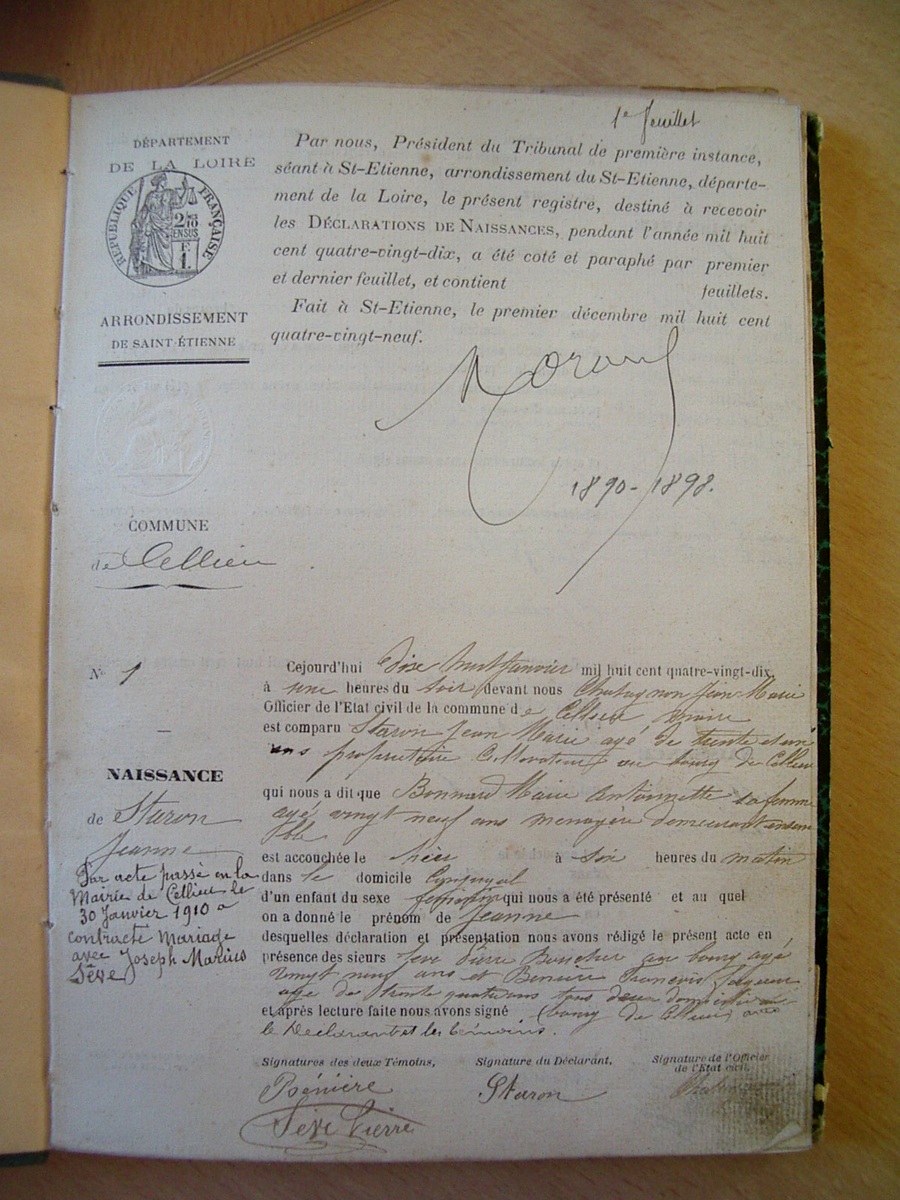 1e feuillet
DÉPARTEMENT
DE LA LOIRE
RÉPUBLIQUE FRANÇAISE
ARRONDISSEMENT
DE SAINT-ÉTIENNE
Par nous, Président du Tribunal de première instance,
séant à St-Etienne, arrondissement du St-Etienne, départe-
ment de la Loire, le présent registre, destiné à recevoir
les DÉCLARATIONS DE NAISSANCES, pendant l'année mil huit
cent quatre-vingt-dix, a été coté et paraphé par premier
et dernier feuillet, et contient feuillets.
Fait à St-Etienne, le premier décembre mil huit cent
quatre-vingt-neuf.
1890-1898.
COMMUNE
de Cellieu
N° 1
NAISSANCE
de Staron
Jeanne
Par acte passé en la
Mairie de Cellieu le
30 Janvier 1910 a
contracté Mariage
avec Joseph Marius
Sève
Cejourd'hui dix huit Janvier mil huit cent quatre-vingt-dix
à une heures du soir devant nous Chatagnon Jean Marie
Officier de l'Etat civil de la commune de Cellieu maire
est comparu Staron Jean Marie agé de trente et un
ans propriétaire Cultivateur au bourg de Cellieu
qui nous a dit que Bonnard Marie Antoinette sa femme
agé vingt neuf ans menagère demeurant ensem
ble
est accouchée le hier à six heures du matin
dans le domicile Conjugal
d'un enfant du sexe feminin qui nous a été présenté et au quel
on a donné le prénom de Jeanne
desquelles déclaration et présentation nous avons rédigé le présent acte en
présence des sieurs Seve Pierre Boucher au bourg agé
vingt neuf ans et Beniere François
agé de trente quatre ans tous deux
et après lecture faite nous avons signé (bourg de Cellieu) avec
le Declarant et les témoins.
Signatures des deux Témoins, Signature du Déclarant, Signature de l'Officier
de l'Etat civil,
Bénière Staron
Sève Pierre